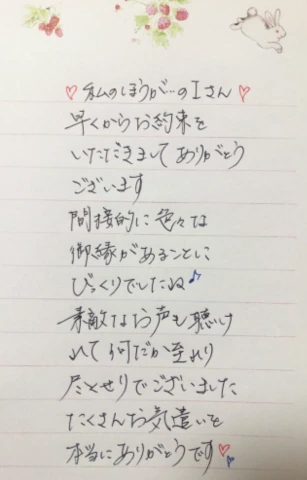 ♡私のほうが…のIさん♡
早くからお約束を
いただきましてありがとう
ございます
間接的に色々な
御縁があることに
びっくりでしたね♪
素敵なお声も聴け
れて何だか至れり
尽くせりでございました
たくさんお気遣いを
本当にありがとうです♡♪